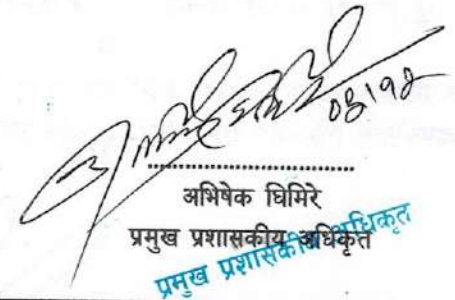 ०३।१२
अभिषेक घिमिरे
प्रमुख प्रशासकीय अधिकृत
प्रमुख प्रशासकीय अधिकृत